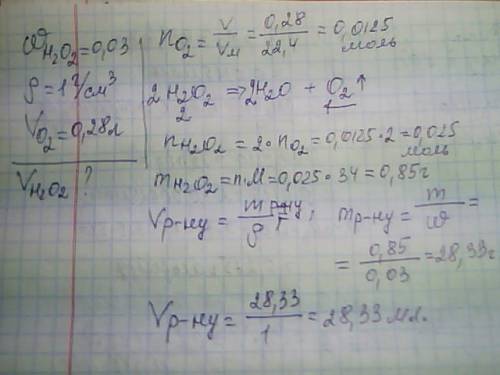 ω H₂O₂ = 0,03
ρ = 1 г/см³
V O₂ = 0,28 л
V H₂O₂ ?
n O₂ = V/Vм = 0,28/22,4 = 0,0125 моль
2H₂O₂ => 2H₂O + O₂↑
2 1
n H₂O₂ = 2·n O₂ = 0,0125·2 = 0,025 моль
m H₂O₂ = n·M = 0,025·34 = 0,85 г
V р-ну = m р-ну/ρ ; m р-ну = m/ω =
= 0,85/0,03 = 28,33 г
V р-ну = 28,33/1 = 28,33 мл.